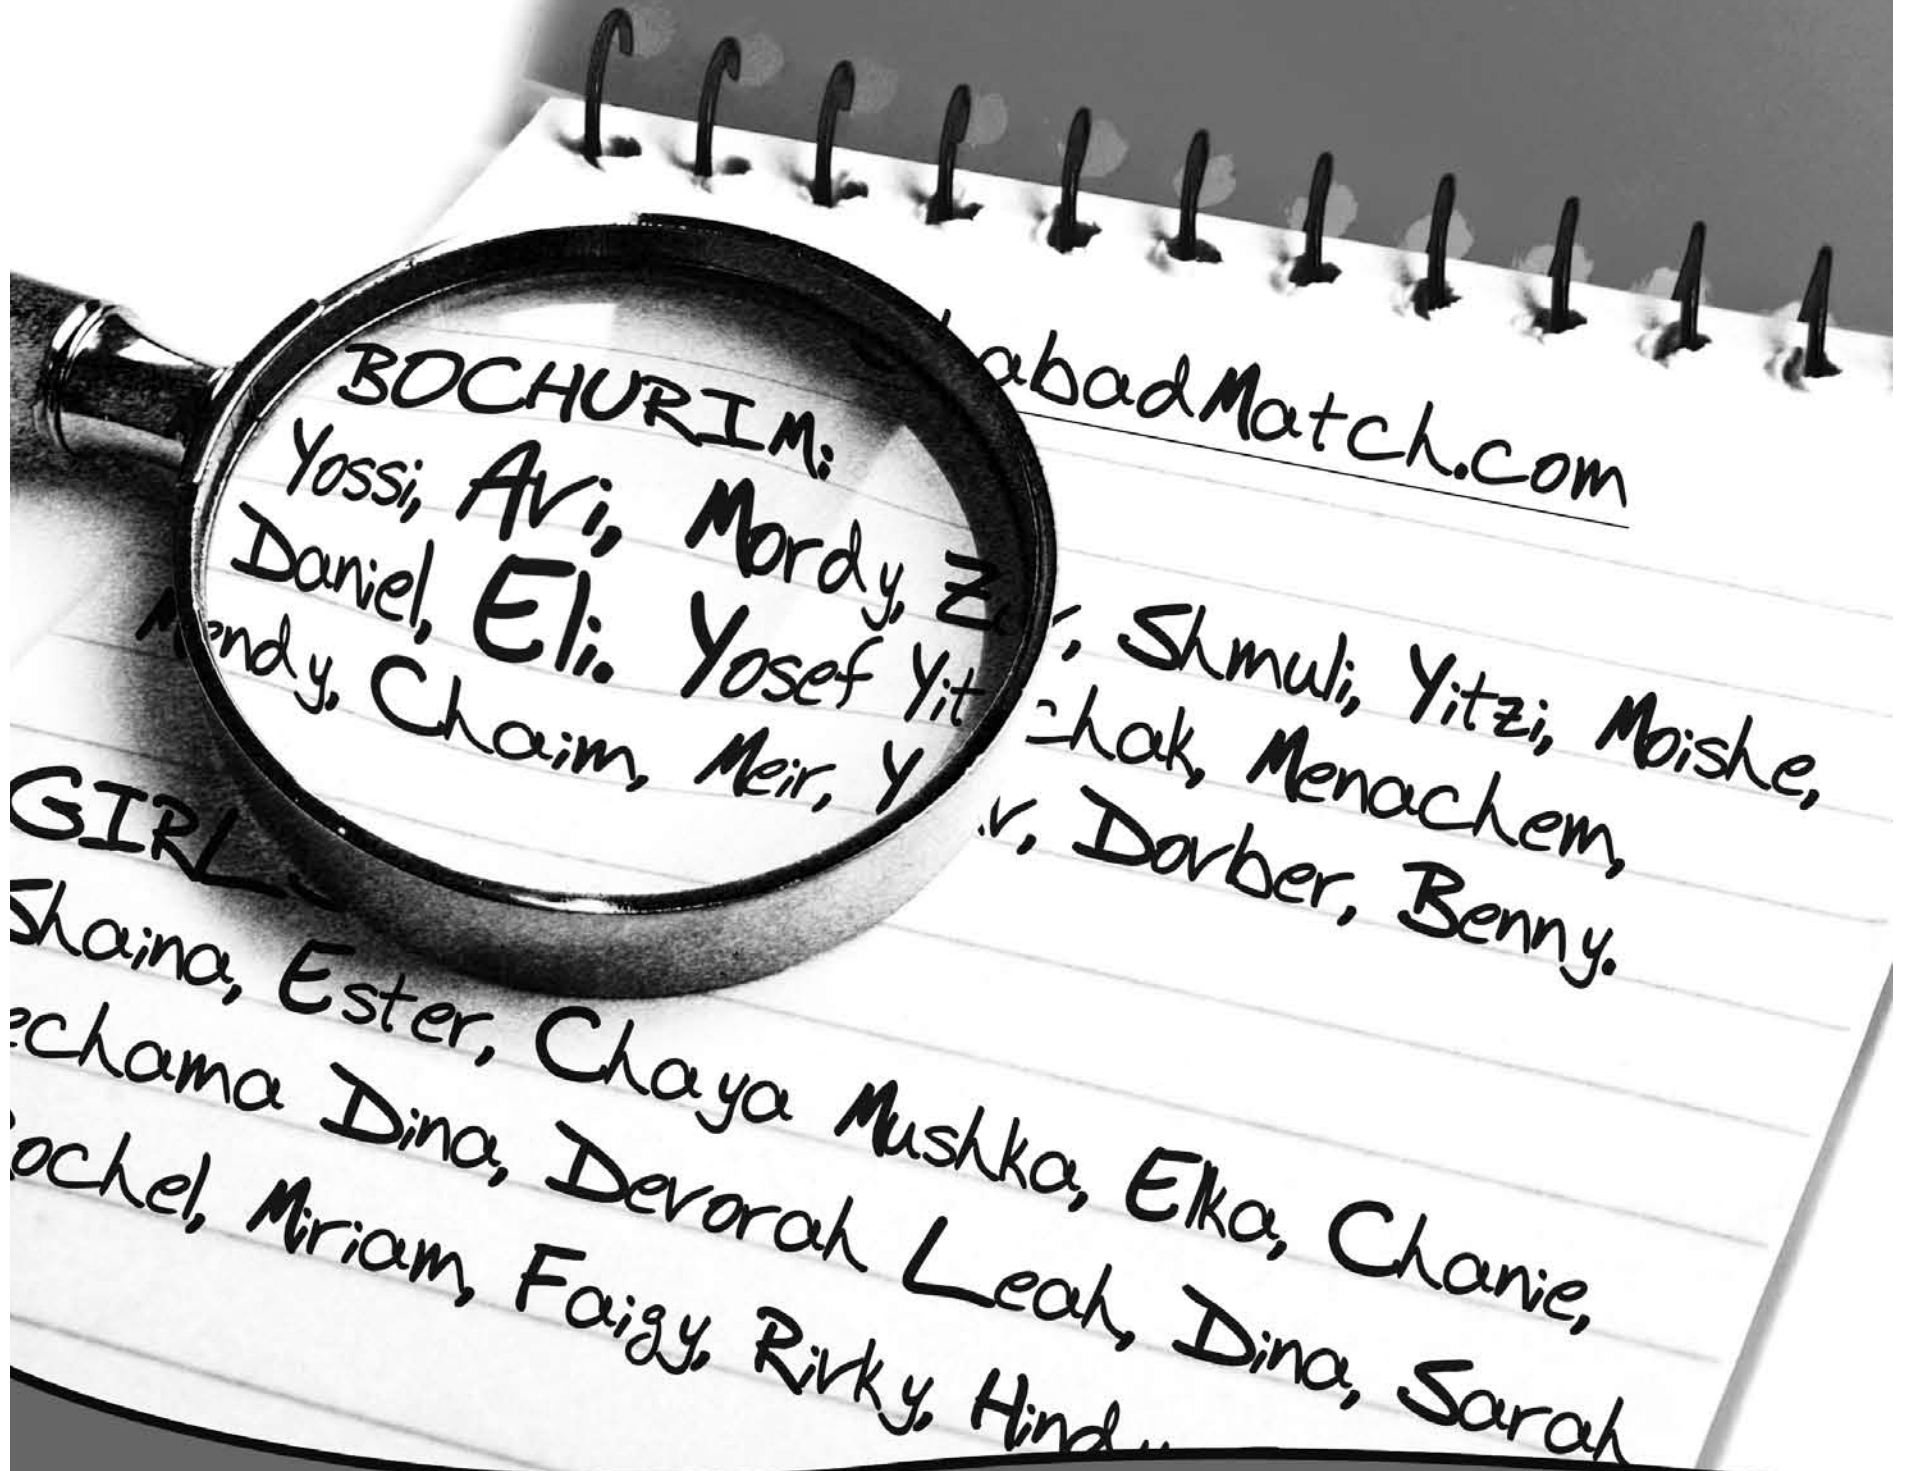 abadMatch.com
BOCHURIM:
Yossi, Avi, Mordy, Shmuli, Yitzi, Moishe,
Daniel, Eli. Yosef Yit chak, Menachem,
Mendy, Chaim, Meir, Dovber, Benny.
GIRL
Shaina, Ester, Chaya Mushka, Elka, Chanie,
echama Dina, Devorah Leah, Dina, Sarah
ochel, Miriam, Faigy, Rivky, Hindy